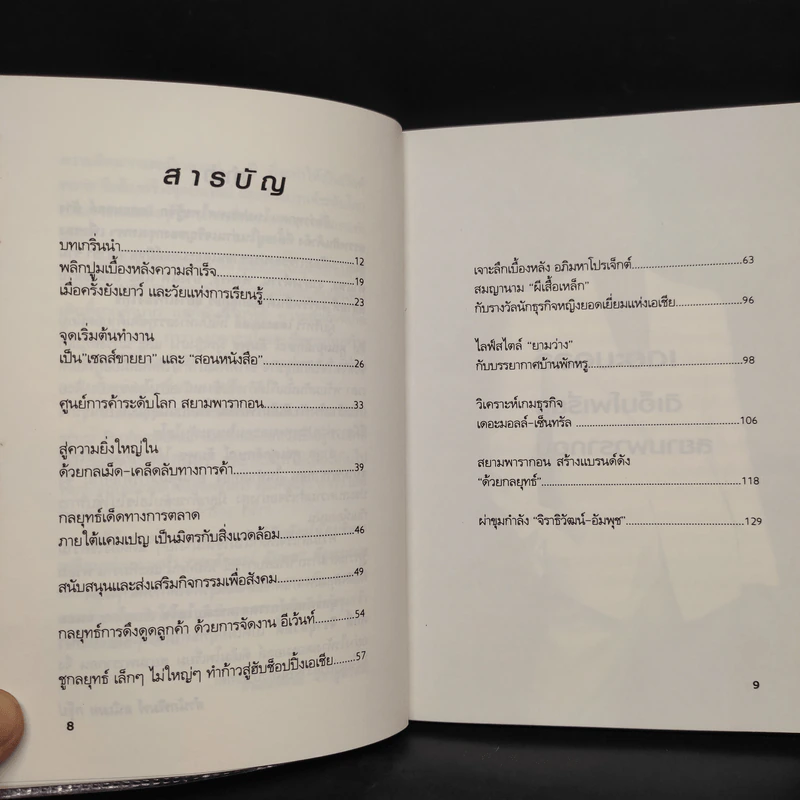 สารบัญ
บทเกริ่นนำ.....12
พลิกปูมเบื้องหลังความสำเร็จ.....19
เมื่อครั้งยังเยาว์ และวัยแห่งการเรียนรู้.....23
จุดเริ่มต้นทำงาน
เป็น"เซลส์ขายยา" และ "สอนหนังสือ".....26
ศูนย์การค้าระดับโลก สยามพารากอน.....33
สู่ความยิ่งใหญ่ใน
ด้วยกลเม็ด-เคล็ดลับทางการค้า.....39
กลยุทธ์เด็ดทางการตลาด
ภายใต้แคมเปญ เป็นมิตรกับสิ่งแวดล้อม.....46
สนับสนุนและส่งเสริมกิจกรรมเพื่อสังคม.....49
กลยุทธ์การดึงดูดลูกค้า ด้วยการจัดงาน อีเว้นท์.....54
ชูกลยุทธ์ เล็กๆ ไม่ใหญ่ๆ ทำก้าวสู่ฮับช็อปปิ้งเอเชีย.....57
8
เจาะลึกเบื้องหลัง อภิมหาโปรเจ็กต์.....63
สมญานาม "ผีเสื้อเหล็ก"
กับรางวัลนักธุรกิจหญิงยอดเยี่ยมแห่งเอเชีย.....96
ไลฟ์สไตล์ "ยามว่าง"
กับบรรยากาศบ้านพักหรู.....98
วิเคราะห์เกมธุรกิจ
เดอะมอลล์-เซ็นทรัล.....106
สยามพารากอน สร้างแบรนด์ดัง
"ด้วยกลยุทธ์".....118
ผ่าขุมกำลัง "จิราธิวัฒน์-อัมพุช".....129
9